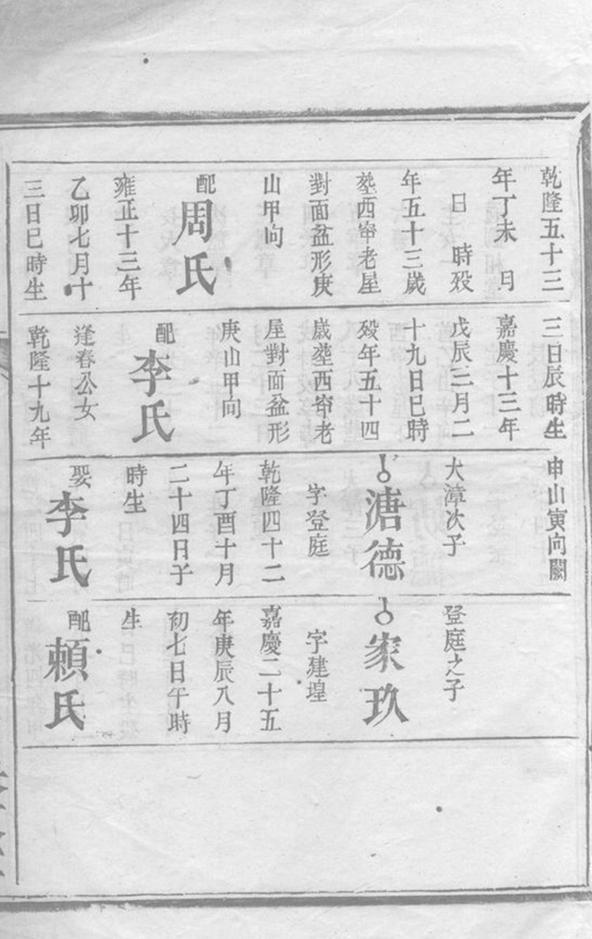 乾隆五十三
年丁未　日
日　時殁
年五十三歲
塟西窜老屋
對面盆形庚
山甲向
配
周氏
雍正十三年
乙卯七月十
三日巳時生
三日辰時生
嘉慶十三年
戊辰三月二
十九日巳時
殁年五十四
歲塟西窜老
屋對面盆形
庚山甲向
配
李氏
逢春公女
乾隆十九年
申山寅向闕
大漳次子
溏德
字登庭
乾隆四十二
年丁酉十月
二十四日子
時生
娶
李氏
登庭之子
家玖
字建堭
嘉慶二十五
年庚辰八月
初七日午時
生
配
賴氏